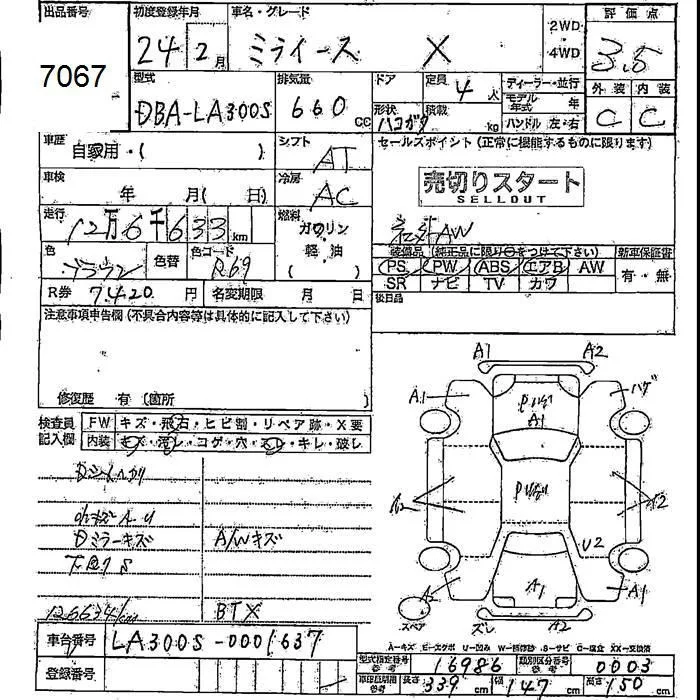 出品番号 初度登録年月 車名・グレード 評価点
7067 24 2月 ミライース X 2WD・4WD 3.5
外装 内装
C C
型式 排気量 ドア 定員 ディーラー・並行
DBA-LA300S 660cc 4人 モデル年式 年
形状 ハコガタ 積載 kg ハンドル 左・右
車歴 シフト セールスポイント(正常に機能するものに限ります)
自家用・( ) AT
車検 年 月( 日) 冷房 AC
売切りスタート
SELLOUT
走行 12万6千633km 燃料 ガソリン 軽油 ( )
社外AW
色 ブラウン 色替 色コード R69
装備品(純正品に限り○をつけて下さい) 新車保証書
PS PW ABS エアB AW 有・無
SR ナビ TV カワ
R券 7,420円 名変期限 月 日 後日品
注意事項申告欄(不具合内容等は具体的に記入して下さい)
修復歴 有(箇所 )
検査員記入欄 FW キズ・飛石・ヒビ割・リペア跡・X要
内装 キズ・汚レ・コゲ・穴・スレ・キレ・破レ
Dミラーキズ A/Wキズ
下回りS
126634km BTX
A1 A2
A1 ハゲ
Pハゲ
A1
Pハゲ
A2 A2
U2
A2 A1 A1
スペア ズレ A2
A-キズ E-エクボ U-凹み W-補修跡 S-サビ C-腐食 XX-交換済
車台番号 LA300S-0001637
登録番号
型式指定番号参考 16986 類別区分番号参考 0003
車検証記載参考 長さ 339cm 幅 147cm 高さ 150cm